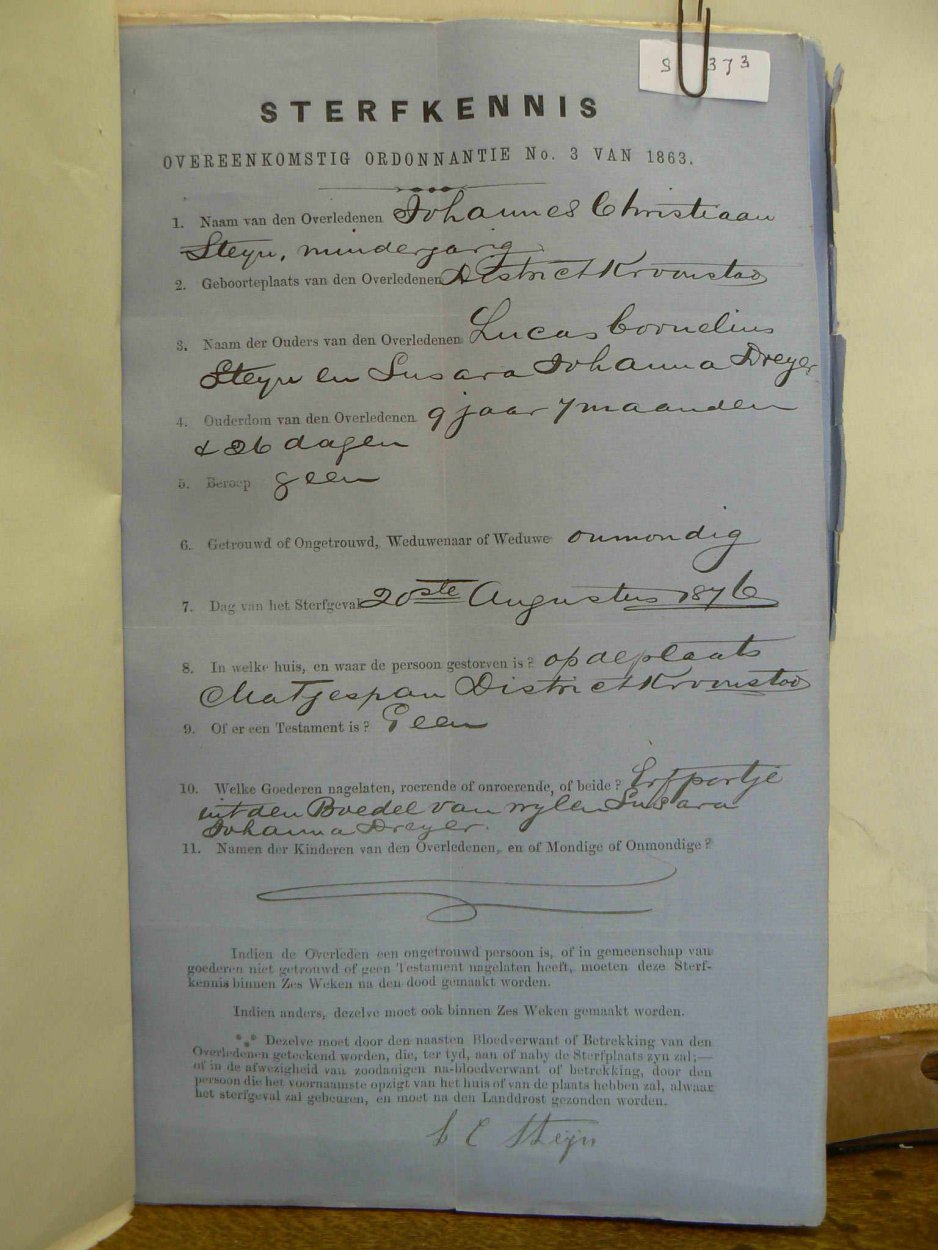 S 373
STERFKENNIS
OVEREENKOMSTIG ORDONNANTIE No. 3 VAN 1863.
1. Naam van den Overledenen Johannes Christiaan
Steyn, minderjarig
2. Geboorteplaats van den Overledenen District Kroonstad
3. Naam der Ouders van den Overledenen Lucas Cornelius
Steyn en Susara Johanna Dreyer
4. Ouderdom van den Overledenen 9 jaar 7 maanden
& 26 dagen
5. Beroep geen
6. Getrouwd of Ongetrouwd, Weduwenaar of Weduwe onmondig
7. Dag van het Sterfgeval 20ste Augustus 1876
8. In welke huis, en waar de persoon gestorven is? op de plaats
Matjespan District Kroonstad
9. Of er een Testament is? Geen
10. Welke Goederen nagelaten, roerende of onroerende, of beide? Erfportje
uit den Boedel van wylen Susara
Johanna Dreyer.
11. Namen der Kinderen van den Overledenen, en of Mondige of Onmondige?
Indien de Overleden een ongetrouwd persoon is, of in gemeenschap van
goederen niet getrouwd of geen Testament nagelaten heeft, moeten deze Sterf-
kennis binnen Zes Weken na den dood gemaakt worden.
Indien anders, dezelve moet ook binnen Zes Weken gemaakt worden.
Dezelve moet door den naasten Bloedverwant of Betrekking van den
Overledenen geteekend worden, die, ter tyd, aan of naby de Sterfplaats zyn zal;—
of in de afwezigheid van zoodanigen na-bloedverwant of betrekking, door den
persoon die het voornaamste opzigt van het huis of van de plaats hebben zal, alwaar
het sterfgeval zal gebeuren, en moet na den Landdrost gezonden worden.
C Steyn